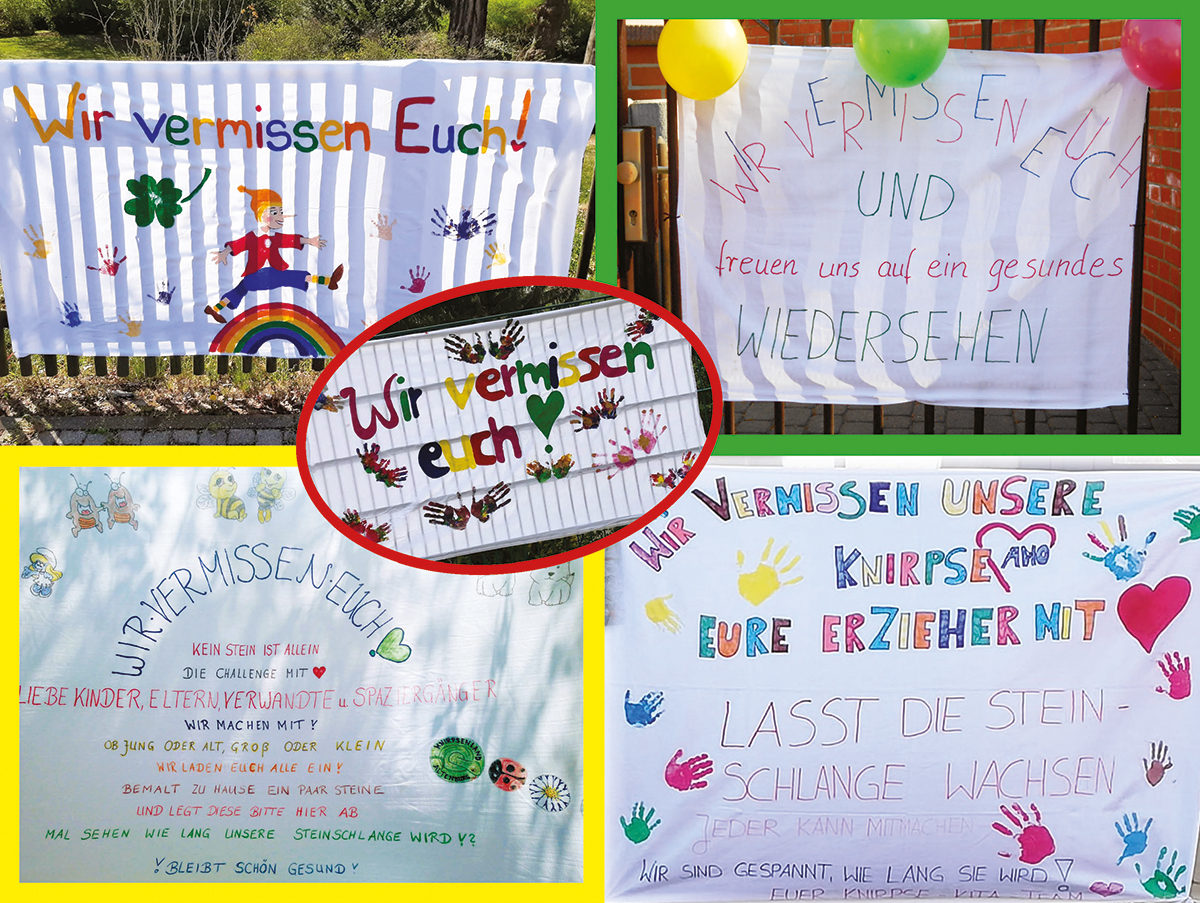 Wir vermissen Euch!
WIR VERMISSEN EUCH
UND
freuen uns auf ein gesundes
WIEDERSEHEN
Wir vermissen
euch!
WIR·VERMISSEN·EUCH!
KEIN STEIN IST ALLEIN
DIE CHALLENGE MIT ♥
LIEBE KINDER, ELTERN, VERWANDTE u. SPAZIERGÄNGER
WIR MACHEN MIT!
OB JUNG ODER ALT, GROß ODER KLEIN
WIR LADEN EUCH ALLE EIN!
BEMALT ZU HAUSE EIN PAAR STEINE
UND LEGT DIESE BITTE HIER AB
MAL SEHEN WIE LANG UNSERE STEINSCHLANGE WIRD!?
!BLEIBT SCHÖN GESUND!
KNIRPSENLAND
WIR VERMISSEN UNSERE
KNIRPSE
EURE ERZIEHER MIT ♥
LASST DIE STEIN-
SCHLANGE WACHSEN
JEDER KANN MITMACHEN
WIR SIND GESPANNT, WIE LANG SIE WIRD!
EUER KNIRPSE KITA TEAM